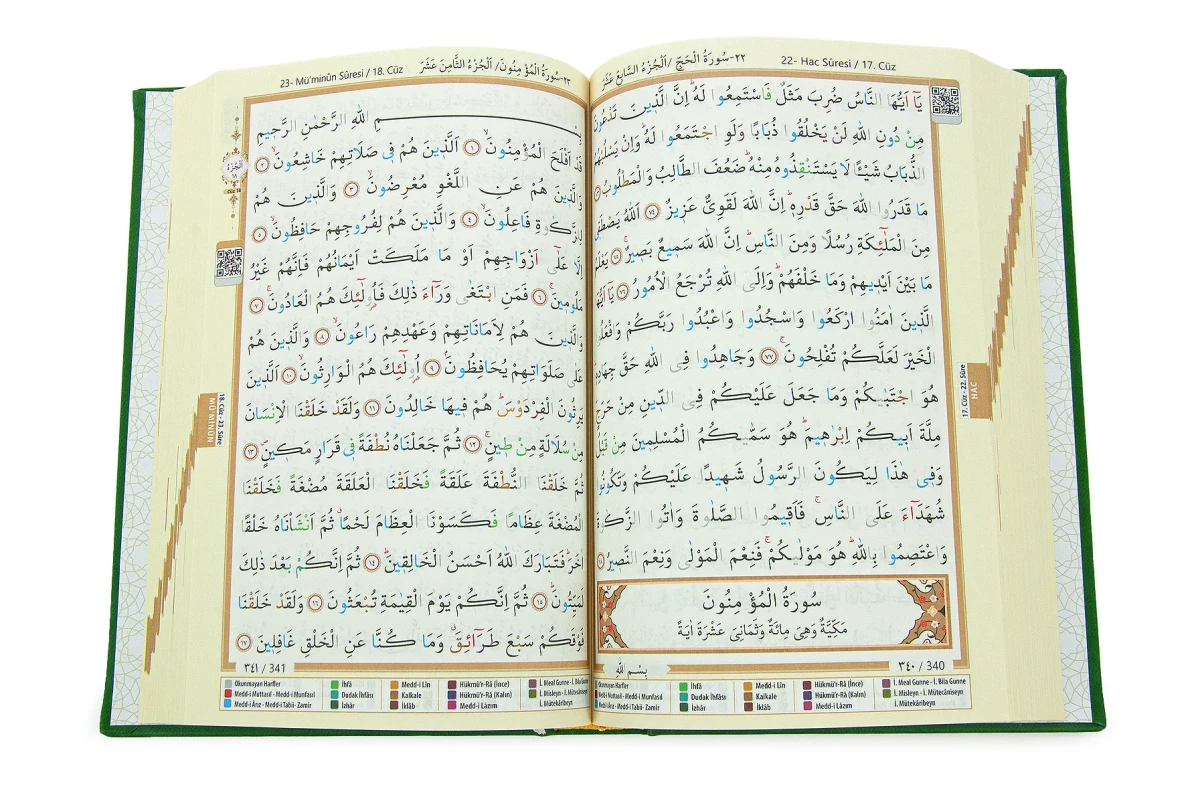 ٢٢-سُورَةُ الْحَجِّ / اَلْجُزْءُ السَّابِعَ عَشَرَ
22- Hac Sûresi / 17. Cüz
يَٓا اَيُّهَا النَّاسُ ضُرِبَ مَثَلٌ فَاسْتَمِعُوا لَهُ اِنَّ الَّذ۪ينَ تَدْعُونَ
مِنْ دُونِ اللّٰهِ لَنْ يَخْلُقُوا ذُبَابًا وَلَوِ اجْتَمَعُوا لَهُ وَاِنْ يَسْلُبْهُمُ
الذُّبَابُ شَيْـًٔا لَا يَسْتَنْقِذُوهُ مِنْهُ ضَعُفَ الطَّالِبُ وَالْمَطْلُوبُ
مَا قَدَرُوا اللّٰهَ حَقَّ قَدْرِه۪ اِنَّ اللّٰهَ لَقَوِيٌّ عَز۪يزٌ ٧٤ اَللّٰهُ يَصْطَف۪ي
مِنَ الْمَلٰٓئِكَةِ رُسُلًا وَمِنَ النَّاسِ اِنَّ اللّٰهَ سَم۪يعٌ بَص۪يرٌ ٧٥ يَعْلَمُ
مَا بَيْنَ اَيْد۪يهِمْ وَمَا خَلْفَهُمْ وَاِلَى اللّٰهِ تُرْجَعُ الْاُمُورُ ٧٦ يَٓا اَيُّهَا
الَّذ۪ينَ اٰمَنُوا ارْكَعُوا وَاسْجُدُوا وَاعْبُدُوا رَبَّكُمْ وَافْعَلُوا
الْخَيْرَ لَعَلَّكُمْ تُفْلِحُونَ ٧٧ وَجَاهِدُوا فِي اللّٰهِ حَقَّ جِهَادِه۪
هُوَ اجْتَبٰيكُمْ وَمَا جَعَلَ عَلَيْكُمْ فِي الدّ۪ينِ مِنْ حَرَجٍ
مِلَّةَ اَب۪يكُمْ اِبْرٰه۪يمَ هُوَ سَمّٰيكُمُ الْمُسْلِم۪ينَ مِنْ قَبْلُ
وَف۪ي هٰذَا لِيَكُونَ الرَّسُولُ شَه۪يدًا عَلَيْكُمْ وَتَكُونُوا
شُهَدَٓاءَ عَلَى النَّاسِ فَاَق۪يمُوا الصَّلٰوةَ وَاٰتُوا الزَّكٰوةَ
وَاعْتَصِمُوا بِاللّٰهِ هُوَ مَوْلٰيكُمْ فَنِعْمَ الْمَوْلٰى وَنِعْمَ النَّص۪يرُ
سُورَةُ الْمُؤْمِنُونَ
مَكِّيَّةٌ وَهِيَ مِائَةٌ وَثَمَانِيَ عَشْرَةَ اٰيَةً
بِسْمِ اللّٰهِ
٣٤٠ / 340
17. Cüz - 22. Sûre
HAC
Okunmayan Harfler
Medd-i Muttasıl - Medd-i Munfasıl
Medd-i Ârız - Medd-i Tabiî- Zamir
İhfâ
Dudak İhfâsı
İzhâr
Medd-i Lîn
Kalkale
İklâb
Hükmü'r-Râ (İnce)
Hükmü'r-Râ (Kalın)
Medd-i Lâzım
İ. Meal Gunne - İ. Bila Gunne
İ. Misleyn - İ. Mütecâniseyn
İ. Mütekâribeyn
23- Mü'minûn Sûresi / 18. Cüz
٢٣-سُورَةُ الْمُؤْمِنُونَ / اَلْجُزْءُ الثَّامِنَ عَشَرَ
بِسْمِ اللّٰهِ الرَّحْمٰنِ الرَّح۪يمِ
قَدْ اَفْلَحَ الْمُؤْمِنُونَ ١ اَلَّذ۪ينَ هُمْ ف۪ي صَلَاتِهِمْ خَاشِعُونَ ٢
وَالَّذ۪ينَ هُمْ عَنِ اللَّغْوِ مُعْرِضُونَ ٣ وَالَّذ۪ينَ هُمْ
لِلزَّكٰوةِ فَاعِلُونَ ٤ وَالَّذ۪ينَ هُمْ لِفُرُوجِهِمْ حَافِظُونَ ٥
اِلَّا عَلٰٓى اَزْوَاجِهِمْ اَوْ مَا مَلَكَتْ اَيْمَانُهُمْ فَاِنَّهُمْ غَيْرُ
مَلُوم۪ينَ ٦ فَمَنِ ابْتَغٰى وَرَٓاءَ ذٰلِكَ فَاُو۬لٰٓئِكَ هُمُ الْعَادُونَ ٧
وَالَّذ۪ينَ هُمْ لِاَمَانَاتِهِمْ وَعَهْدِهِمْ رَاعُونَ ٨ وَالَّذ۪ينَ هُمْ
عَلٰى صَلَوَاتِهِمْ يُحَافِظُونَ ٩ اُو۬لٰٓئِكَ هُمُ الْوَارِثُونَ ١٠ اَلَّذ۪ينَ
يَرِثُونَ الْفِرْدَوْسَ هُمْ ف۪يهَا خَالِدُونَ ١١ وَلَقَدْ خَلَقْنَا الْاِنْسَانَ
مِنْ سُلَالَةٍ مِنْ ط۪ينٍ ١٢ ثُمَّ جَعَلْنَاهُ نُطْفَةً ف۪ي قَرَارٍ مَك۪ينٍ ١٣
ثُمَّ خَلَقْنَا النُّطْفَةَ عَلَقَةً فَخَلَقْنَا الْعَلَقَةَ مُضْغَةً فَخَلَقْنَا
الْمُضْغَةَ عِظَامًا فَكَسَوْنَا الْعِظَامَ لَحْمًا ثُمَّ اَنْشَاْنَاهُ خَلْقًا
اٰخَرَ فَتَبَارَكَ اللّٰهُ اَحْسَنُ الْخَالِق۪ينَ ١٤ ثُمَّ اِنَّكُمْ بَعْدَ ذٰلِكَ
لَمَيِّتُونَ ١٥ ثُمَّ اِنَّكُمْ يَوْمَ الْقِيٰمَةِ تُبْعَثُونَ ١٦ وَلَقَدْ خَلَقْنَا
فَوْقَكُمْ سَبْعَ طَرَٓائِقَ وَمَا كُنَّا عَنِ الْخَلْقِ غَافِل۪ينَ ١٧
٣٤١ / 341
اَلْجُزْءُ
١٨
Cüz 18
18. Cüz - 23. Sûre
MÜ'MİNÛN
Okunmayan Harfler
Medd-i Muttasıl - Medd-i Munfasıl
Medd-i Ârız - Medd-i Tabiî- Zamir
İhfâ
Dudak İhfâsı
İzhâr
Medd-i Lîn
Kalkale
İklâb
Hükmü'r-Râ (İnce)
Hükmü'r-Râ (Kalın)
Medd-i Lâzım
İ. Meal Gunne - İ. Bila Gunne
İ. Misleyn - İ. Mütecâniseyn
İ. Mütekâribeyn